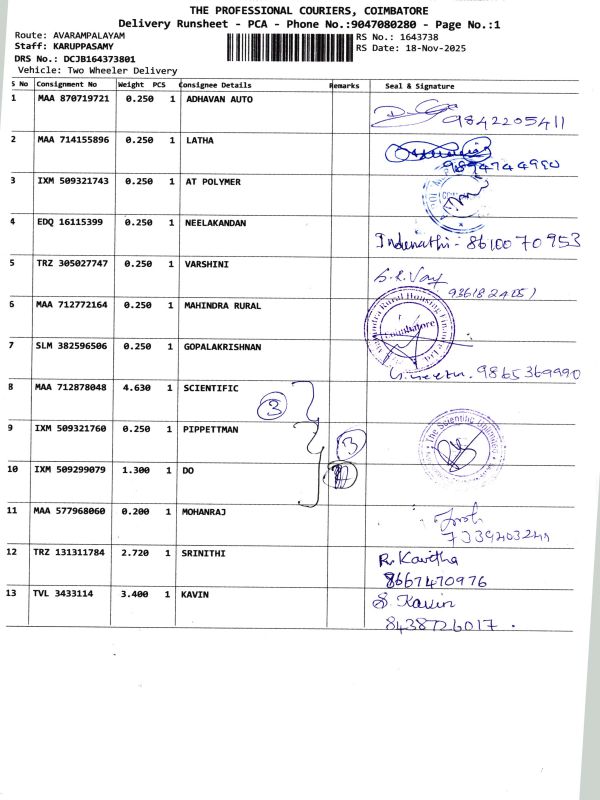 THE PROFESSIONAL COURIERS, COIMBATORE
Delivery Runsheet - PCA - Phone No.:9047080280 - Page No.:1
Route: AVARAMPALAYAM RS No.: 1643738
Staff: KARUPPASAMY RS Date: 18-Nov-2025
DRS No.: DCJB164373801
Vehicle: Two Wheeler Delivery
S No Consignment No Weight PCS Consignee Details Remarks Seal & Signature
1 MAA 870719721 0.250 1 ADHAVAN AUTO
9842205411
2 MAA 714155896 0.250 1 LATHA
9894744990
3 IXM 509321743 0.250 1 AT POLYMER
4 EDQ 16115399 0.250 1 NEELAKANDAN
Indumathi - 8610070953
5 TRZ 305027747 0.250 1 VARSHINI
6 MAA 712772164 0.250 1 MAHINDRA RURAL
Mahindra Rural Housing Finance Ltd. Coimbatore
7 SLM 382596506 0.250 1 GOPALAKRISHNAN
9865369990
8 MAA 712878048 4.630 1 SCIENTIFIC
3
9 IXM 509321760 0.250 1 PIPPETTMAN
3 The Scientific
10 IXM 509299079 1.300 1 DO
11 MAA 577968060 0.200 1 MOHANRAJ
12 TRZ 131311784 2.720 1 SRINITHI R. Kavitha
8667470976
13 TVL 3433114 3.400 1 KAVIN S. Kavin
8438726017.